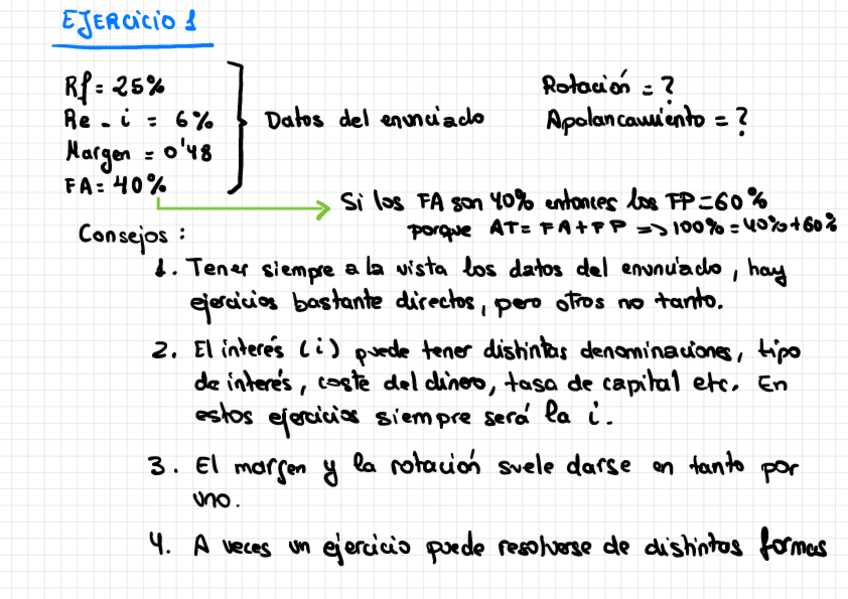 EJERCICIO 1
Rf = 25%
Re - i = 6%
Margen = 0'48
FA = 40%
Datos del enunciado
Rotación = ?
Apalancamiento = ?
Si los FA son 40% entonces los FP = 60%
porque AT = FA + FP => 100% = 40% + 60%
Consejos :
1. Tener siempre a la vista los datos del enunciado, hay
ejercicios bastante directos, pero otros no tanto.
2. El interés (i) puede tener distintas denominaciones, tipo
de interés, coste del dinero, tasa de capital etc. En
estos ejercicios siempre será la i.
3. El margen y la rotación suele darse en tanto por
uno.
4. A veces un ejercicio puede resolverse de distintas formas